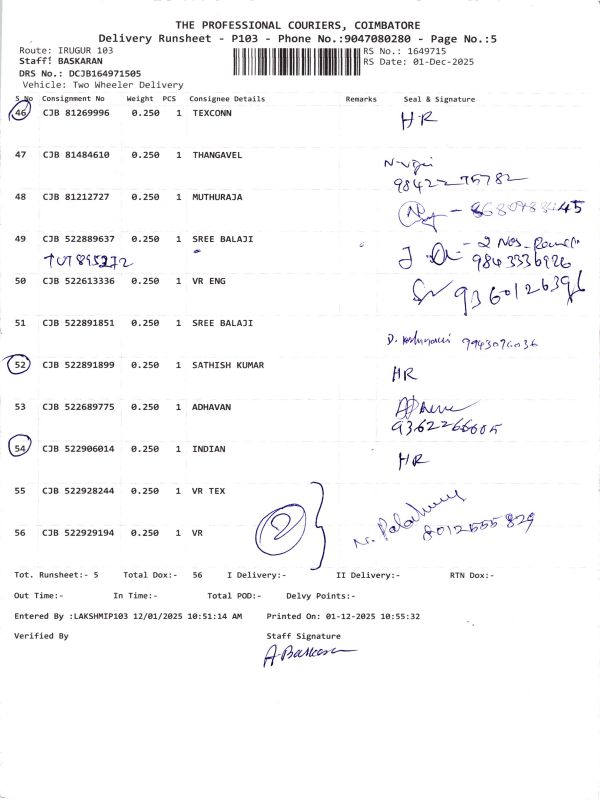 THE PROFESSIONAL COURIERS, COIMBATORE
Delivery Runsheet - P103 - Phone No.:9047080280 - Page No.:5
Route: IRUGUR 103 RS No.: 1649715
Staff: BASKARAN RS Date: 01-Dec-2025
DRS No.: DCJB164971505
Vehicle: Two Wheeler Delivery
S.No Consignment No Weight PCS Consignee Details Remarks Seal & Signature
46 CJB 81269996 0.250 1 TEXCONN HR
47 CJB 81484610 0.250 1 THANGAVEL
98422 75782
48 CJB 81212727 0.250 1 MUTHURAJA
49 CJB 522889637 0.250 1 SREE BALAJI 2 Nos
9843336926
50 CJB 522613336 0.250 1 VR ENG
9360126396
51 CJB 522891851 0.250 1 SREE BALAJI
9943076036
52 CJB 522891899 0.250 1 SATHISH KUMAR HR
53 CJB 522689775 0.250 1 ADHAVAN
9362266605
54 CJB 522906014 0.250 1 INDIAN HR
55 CJB 522928244 0.250 1 VR TEX
2 8012555829
56 CJB 522929194 0.250 1 VR
Tot. Runsheet:- 5 Total Dox:- 56 I Delivery:- II Delivery:- RTN Dox:-
Out Time:- In Time:- Total POD:- Delvy Points:-
Entered By :LAKSHMIP103 12/01/2025 10:51:14 AM Printed On: 01-12-2025 10:55:32
Verified By Staff Signature
A. Baskaran